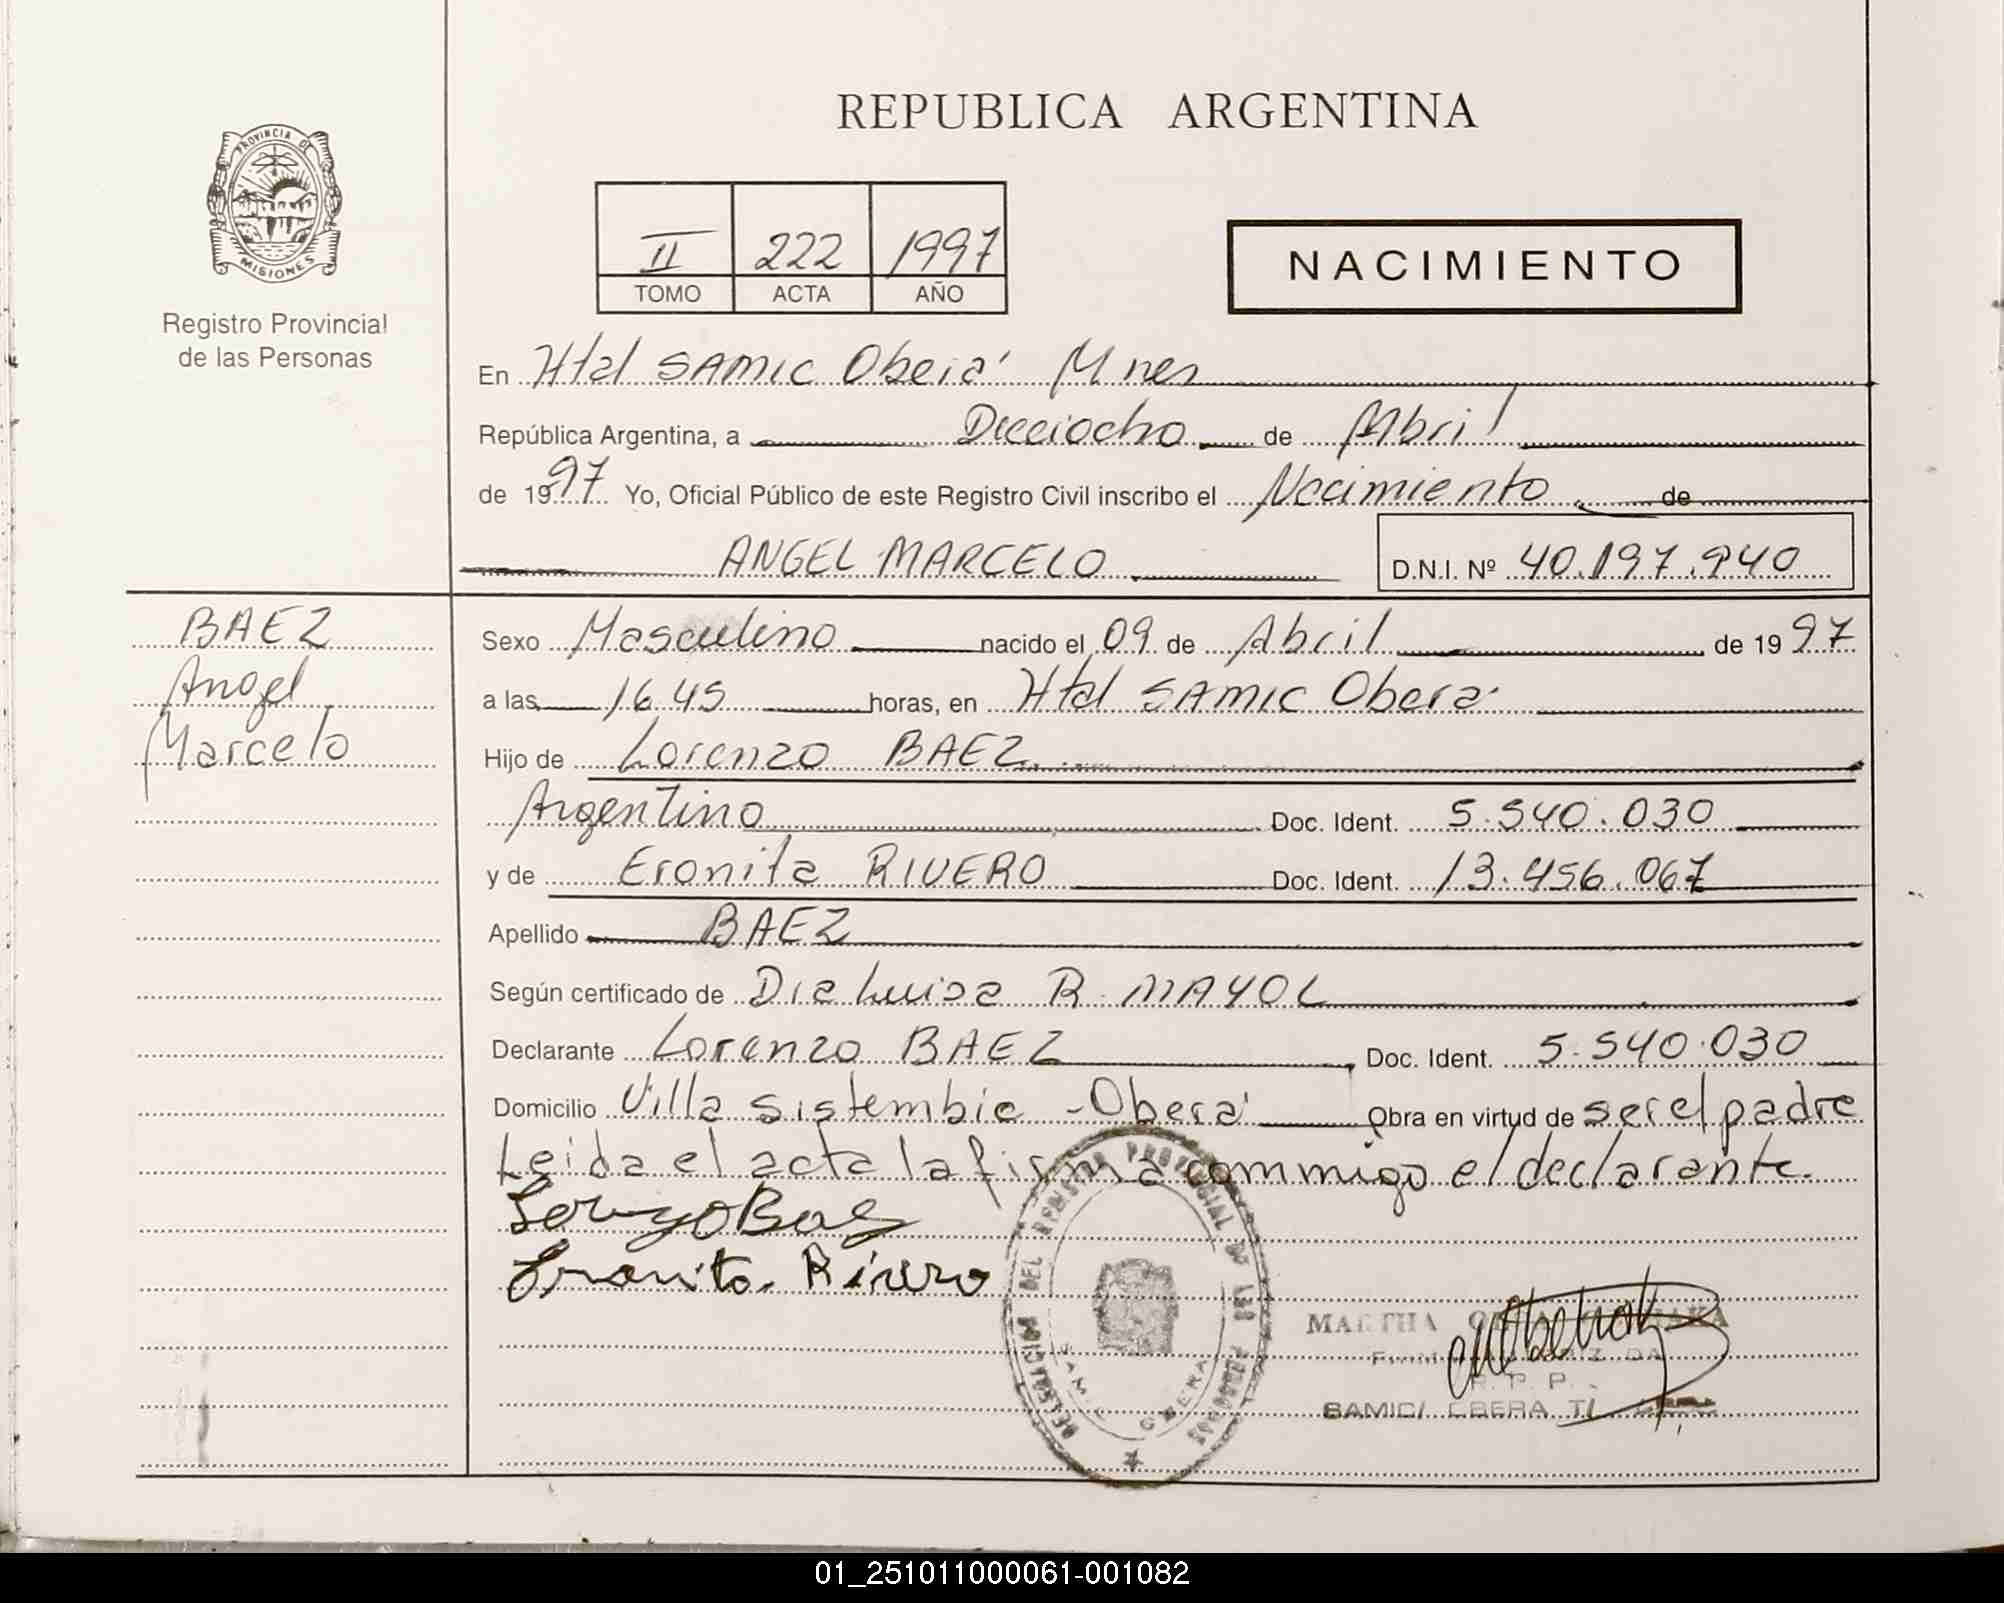 REPUBLICA ARGENTINA
PROVINCIA DE
MISIONES
Registro Provincial
de las Personas
II 222 1997
TOMO ACTA AÑO
NACIMIENTO
En Htal SAMIC Oberá Mnes
República Argentina, a Dieciocho de Abril
de 1997 Yo, Oficial Público de este Registro Civil inscribo el Nacimiento de
ANGEL MARCELO D.N.I. Nº 40.197.940
BAEZ
Angel
Marcelo
Sexo Masculino nacido el 09 de Abril de 1997
a las 16.45 horas, en Htal SAMIC Oberá
Hijo de Lorenzo BAEZ
Argentino Doc. Ident. 5.540.030
y de Eronita RIVERO Doc. Ident. 13.456.067
Apellido BAEZ
Según certificado de Dra Luisa R. MAYOL
Declarante Lorenzo BAEZ Doc. Ident. 5.540.030
Domicilio Villa sistembie - Oberá Obra en virtud de ser el padre
Leida el acta la firma commigo el declarante.
Lorenzo Baez
Eronita Rivero
DELEGACION DEL REGISTRO PROVINCIAL DE LAS PERSONAS
SAMIC OBERA
MARTHA
R. P. P.
SAMIC/ OBERA
01_251011000061-001082